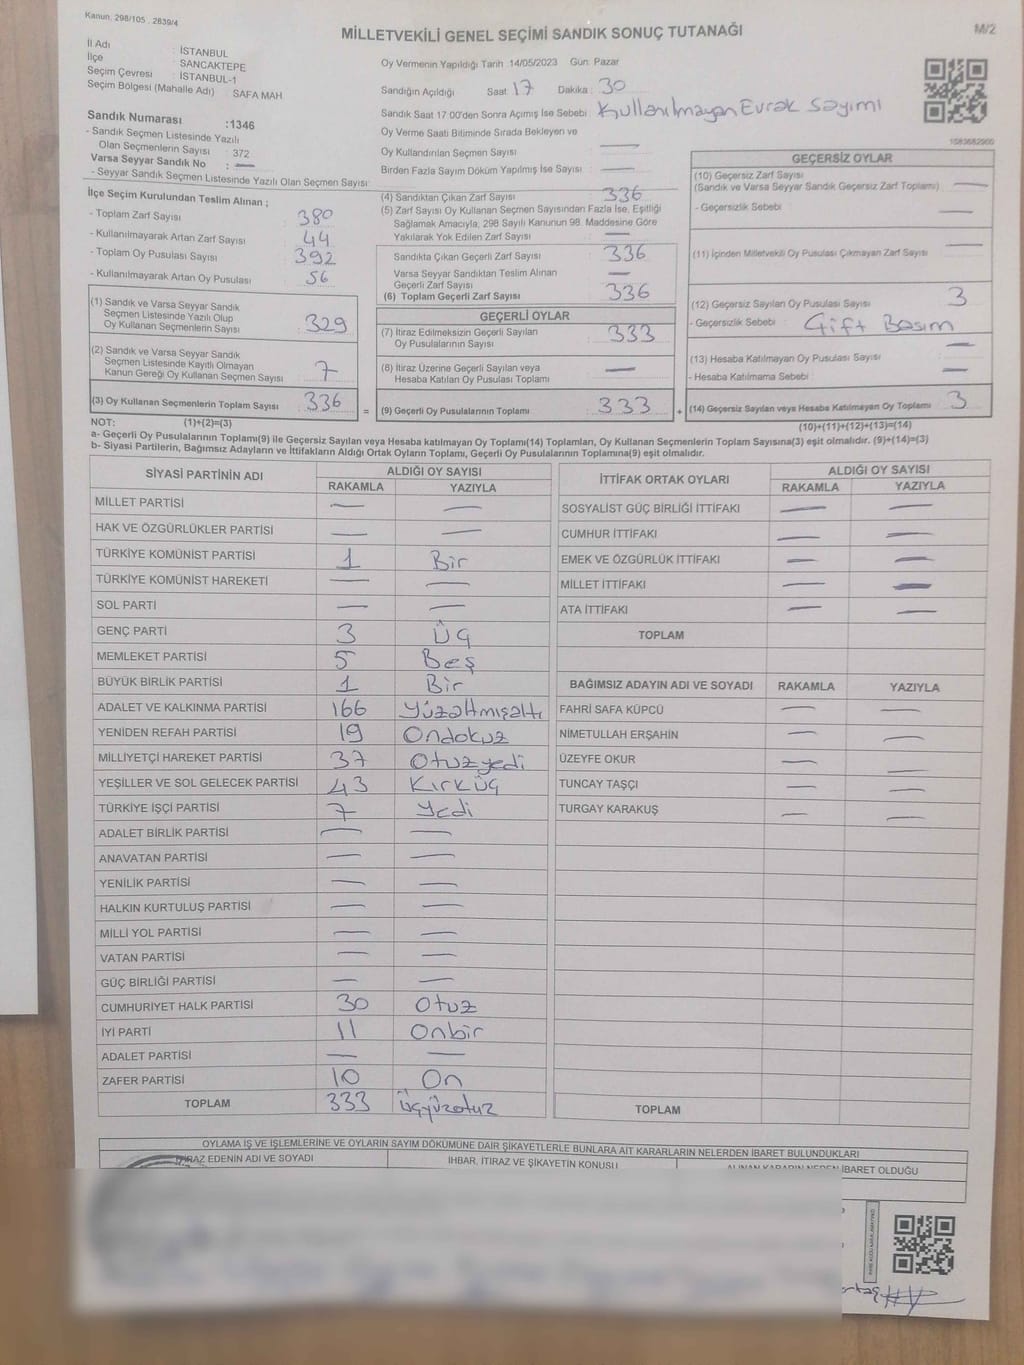 Kanun: 298/105 , 2839/4
MİLLETVEKİLİ GENEL SEÇİMİ SANDIK SONUÇ TUTANAĞI
M/2
İl Adı : İSTANBUL
İlçe : SANCAKTEPE
Seçim Çevresi : İSTANBUL-1
Seçim Bölgesi (Mahalle Adı) : SAFA MAH
Sandık Numarası :1346
- Sandık Seçmen Listesinde Yazılı
Olan Seçmenlerin Sayısı : 372
Varsa Seyyar Sandık No : —
- Seyyar Sandık Seçmen Listesinde Yazılı Olan Seçmen Sayısı:
Oy Vermenin Yapıldığı Tarih :14/05/2023 Gün: Pazar
Sandığın Açıldığı Saat: 17 Dakika : 30
Sandık Saat 17:00'den Sonra Açımış İse Sebebi : Kullanılmayan Evrak Sayımı
Oy Verme Saati Bitiminde Sırada Bekleyen ve
Oy Kullandırılan Seçmen Sayısı : —
Birden Fazla Sayım Döküm Yapılmış İse Sayısı : —
İlçe Seçim Kurulundan Teslim Alınan ;
- Toplam Zarf Sayısı : 380
- Kullanılmayarak Artan Zarf Sayısı : 44
- Toplam Oy Pusulası Sayısı : 392
- Kullanılmayarak Artan Oy Pusulası : 56
(1) Sandık ve Varsa Seyyar Sandık
Seçmen Listesinde Yazılı Olup
Oy Kullanan Seçmenlerin Sayısı : 329
(2) Sandık ve Varsa Seyyar Sandık
Seçmen Listesinde Kayıtlı Olmayan
Kanun Gereği Oy Kullanan Seçmen Sayısı : 7
(3) Oy Kullanan Seçmenlerin Toplam Sayısı : 336
(1)+(2)=(3)
(4) Sandıktan Çıkan Zarf Sayısı : 336
(5) Zarf Sayısı Oy Kullanan Seçmen Sayısından Fazla İse, Eşitliği
Sağlamak Amacıyla, 298 Sayılı Kanunun 98. Maddesine Göre
Yakılarak Yok Edilen Zarf Sayısı : —
Sandıkta Çıkan Geçerli Zarf Sayısı : 336
Varsa Seyyar Sandıktan Teslim Alınan
Geçerli Zarf Sayısı : —
(6) Toplam Geçerli Zarf Sayısı : 336
GEÇERLİ OYLAR
(7) İtiraz Edilmeksizin Geçerli Sayılan
Oy Pusulalarının Sayısı : 333
(8) İtiraz Üzerine Geçerli Sayılan veya
Hesaba Katılan Oy Pusulası Toplamı : —
= (9) Geçerli Oy Pusulalarının Toplamı : 333 +
GEÇERSİZ OYLAR
(10) Geçersiz Zarf Sayısı
(Sandık ve Varsa Seyyar Sandık Geçersiz Zarf Toplamı) : —
- Geçersizlik Sebebi : —
(11) İçinden Milletvekili Oy Pusulası Çıkmayan Zarf Sayısı : —
(12) Geçersiz Sayılan Oy Pusulası Sayısı : 3
- Geçersizlik Sebebi : Çift Basım
(13) Hesaba Katılmayan Oy Pusulası Sayısı : —
- Hesaba Katılmama Sebebi : —
(14) Geçersiz Sayılan veya Hesaba Katılmayan Oy Toplamı : 3
(10)+(11)+(12)+(13)=(14)
NOT:
a- Geçerli Oy Pusulalarının Toplamı(9) ile Geçersiz Sayılan veya Hesaba katılmayan Oy Toplamı(14) Toplamları, Oy Kullanan Seçmenlerin Toplam Sayısına(3) eşit olmalıdır. (9)+(14)=(3)
b- Siyasi Partilerin, Bağımsız Adayların ve İttifakların Aldığı Ortak Oyların Toplamı, Geçerli Oy Pusulalarının Toplamına(9) eşit olmalıdır.
SİYASİ PARTİNİN ADI ALDIĞI OY SAYISI
RAKAMLA YAZIYLA
MİLLET PARTİSİ — —
HAK VE ÖZGÜRLÜKLER PARTİSİ — —
TÜRKİYE KOMÜNİST PARTİSİ 1 Bir
TÜRKİYE KOMÜNİST HAREKETİ — —
SOL PARTİ — —
GENÇ PARTİ 3 Üç
MEMLEKET PARTİSİ 5 Beş
BÜYÜK BİRLİK PARTİSİ 1 Bir
ADALET VE KALKINMA PARTİSİ 166 Yüzaltmışaltı
YENİDEN REFAH PARTİSİ 19 Ondokuz
MİLLİYETÇİ HAREKET PARTİSİ 37 Otuzyedi
YEŞİLLER VE SOL GELECEK PARTİSİ 43 Kırküç
TÜRKİYE İŞÇİ PARTİSİ 7 Yedi
ADALET BİRLİK PARTİSİ — —
ANAVATAN PARTİSİ — —
YENİLİK PARTİSİ — —
HALKIN KURTULUŞ PARTİSİ — —
MİLLİ YOL PARTİSİ — —
VATAN PARTİSİ — —
GÜÇ BİRLİĞİ PARTİSİ — —
CUMHURİYET HALK PARTİSİ 30 Otuz
İYİ PARTİ 11 Onbir
ADALET PARTİSİ — —
ZAFER PARTİSİ 10 On
TOPLAM 333 Üçyüzotuz
İTTİFAK ORTAK OYLARI ALDIĞI OY SAYISI
RAKAMLA YAZIYLA
SOSYALİST GÜÇ BİRLİĞİ İTTİFAKI — —
CUMHUR İTTİFAKI — —
EMEK VE ÖZGÜRLÜK İTTİFAKI — —
MİLLET İTTİFAKI — —
ATA İTTİFAKI — —
TOPLAM
BAĞIMSIZ ADAYIN ADI VE SOYADI RAKAMLA YAZIYLA
FAHRİ SAFA KÜPCÜ — —
NİMETULLAH ERŞAHİN — —
ÜZEYFE OKUR — —
TUNCAY TAŞÇI — —
TURGAY KARAKUŞ — —
TOPLAM
OYLAMA İŞ VE İŞLEMLERİNE VE OYLARIN SAYIM DÖKÜMÜNE DAİR ŞİKAYETLERLE BUNLARA AİT KARARLARIN NELERDEN İBARET BULUNDUKLARI
İTİRAZ EDENİN ADI VE SOYADI İHBAR, İTİRAZ VE ŞİKAYETİN KONUSU ALINAN KARARIN NEDEN İBARET OLDUĞU